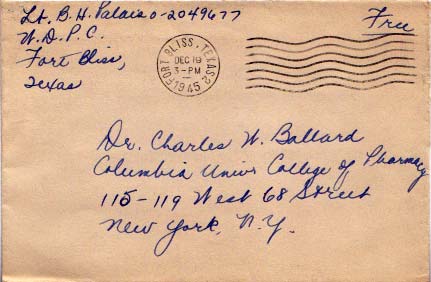 Lt. B. H. Palais O-2049677
W. D. P. C.
Fort Bliss,
Texas
Free
FORT BLISS, TEXAS 2
DEC 19
3-PM
1945
Dr. Charles W. Ballard
Columbia Univ. College of Pharmacy
115-119 West 68 Street
New York, N.Y.